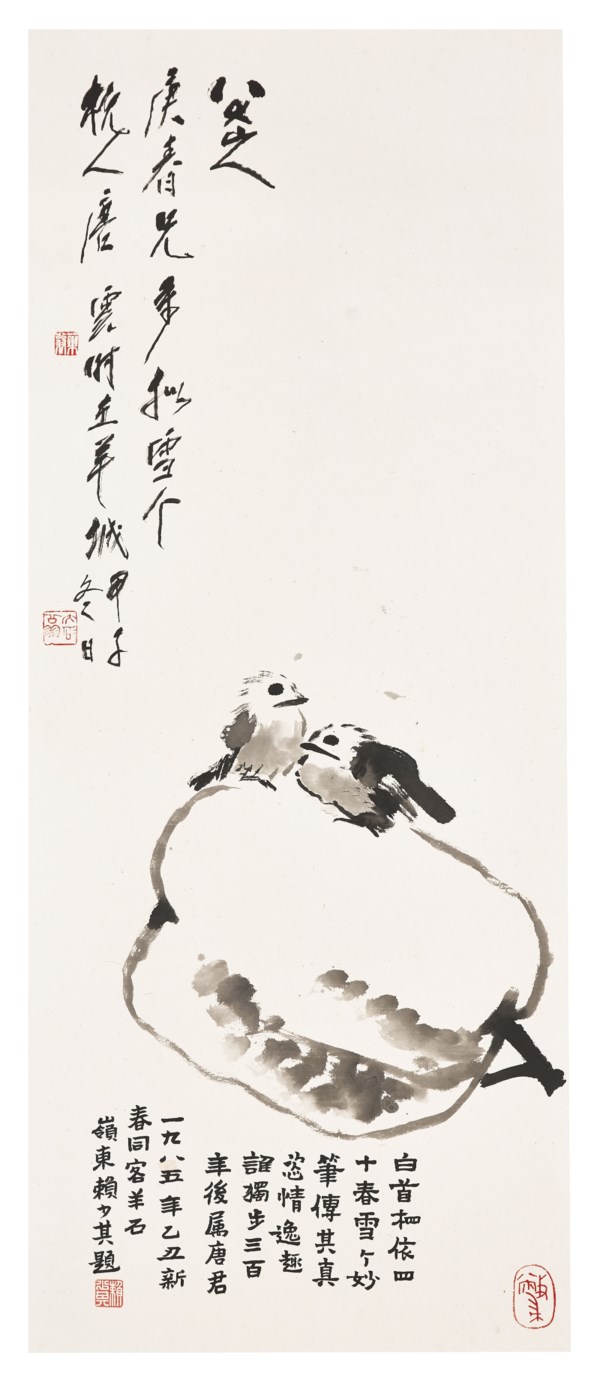 八大
庚春兄屬擬雪个
杭人唐雲時在羊城甲子
冬日
白首相依四
十春雪个妙
筆傳其真
恣情逸趣
誰獨步三百
年後屬唐君
一九八五年乙丑新
春同客羊石
嶺東賴少其題